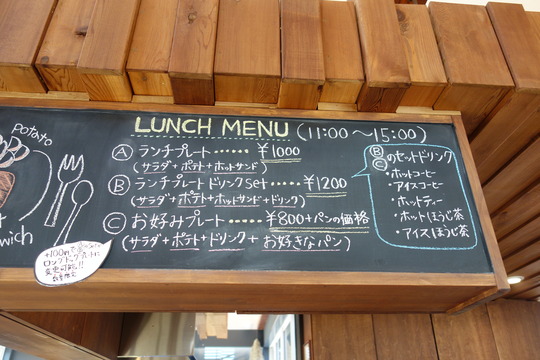 LUNCH MENU (11:00～15:00)
Ⓐ ランチプレート…… ¥1000
(サラダ+ポテト+ホットサンド)
Ⓑ ランチプレートドリンクSet…… ¥1200
(サラダ+ポテト+ホットサンド+ドリンク)
Ⓒ お好みプレート…… ¥800+パンの価格
(サラダ+ポテト+ドリンク+お好きなパン)
Ⓑ
Ⓒ のセットドリンク
・ホットコーヒー
・アイスコーヒー
・ホットティー
・ホットほうじ茶
・アイスほうじ茶
potato
wich
+100円で
変更可能!!